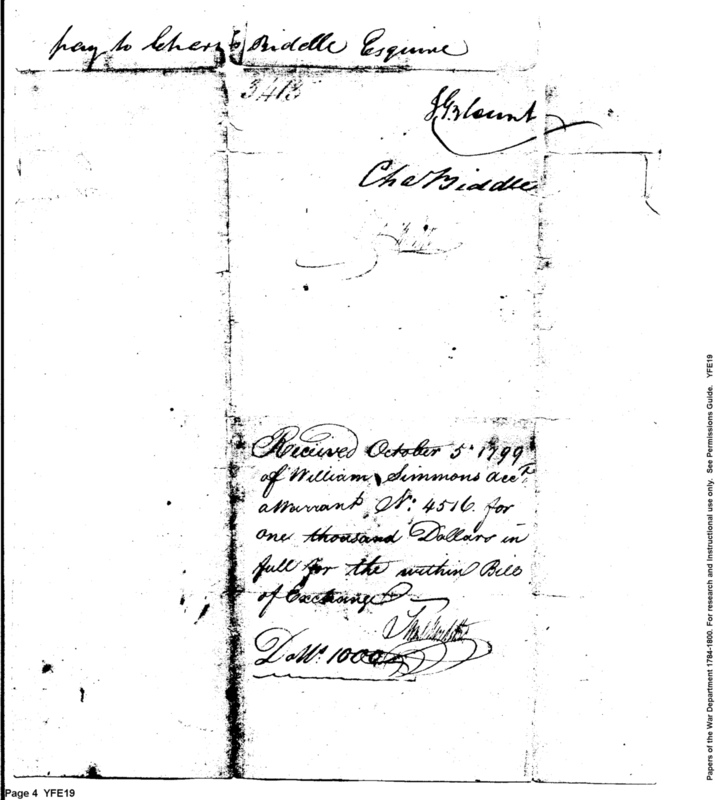 pay to Chars Biddle Esquire
3413
J G Blount
Cha Biddle
Received October 5th 1799
of William Simmons acct
a Warrant No: 4516 for
one thousand Dollars in
full for the within Bill
of Exchange
Dolls 1000
Page 4 YFE19
Papers of the War Department 1784-1800. For research and Instructional use only. See Permissions Guide. YFE19